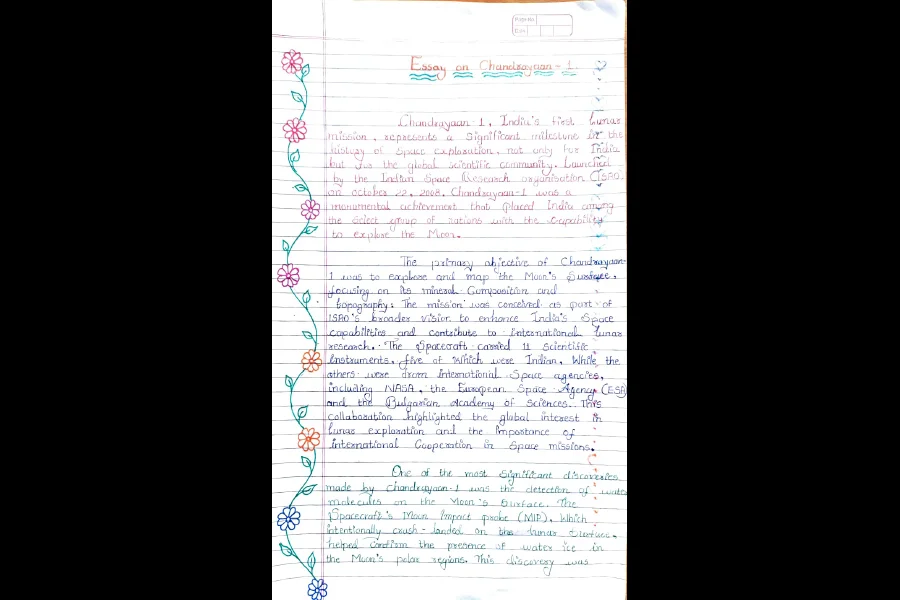 Page No
Date
Essay on Chandrayaan-1.
Chandrayaan-1, India's first lunar
mission, represents a significant milestone in the
history of space exploration, not only for India
but for the global scientific community. Launched
by the Indian Space Research organisation (ISRO)
on october 22, 2008, Chandrayaan-1 was a
monumental achievement that placed India among
the select group of nations with the capability
to explore the Moon.
The primary objective of Chandrayaan-
1 was to explore and map the Moon's surface,
focusing on its mineral composition and
topography. The mission was conceived as part of
ISRO's broader vision to enhance India's space
capabilities and contribute to international lunar
research. The spacecraft carried 11 scientific
instruments, five of which were Indian, while the
others were from international space agencies,
including NASA, the European Space Agency (ESA)
and the Bulgarian Academy of sciences. This
collaboration highlighted the global interest in
lunar exploration and the importance of
international cooperation in space missions.
One of the most significant discoveries
made by Chandrayaan-1 was the detection of water
molecules on the Moon's surface. The
spacecraft's Moon Impact probe (MIP), which
intentionally crush-landed on the lunar surface,
helped confirm the presence of water ice in
the Moon's polar regions. This discovery was